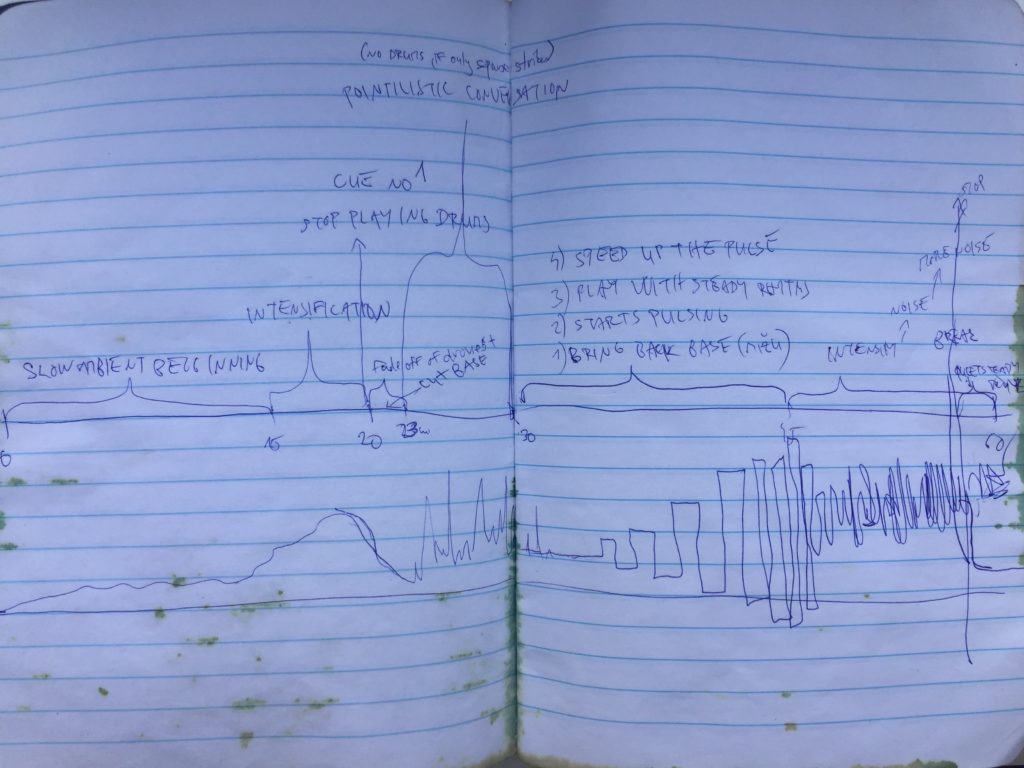 (NO DRUMS, if only sparse strikes)
POINTILISTIC CONVERSATION
CUE NO 1
STOP PLAYING DRUMS
INTENSIFICATION
SLOW AMBIENT BEGGINNING
Fade off of
CUT BASE
0
15
20
23
30
4) SPEED UP THE PULSE
3) PLAY WITH STEADY
2) STARTS PULSING
1) BRING BACK BASE
INTENSIFY
NOISE
MORE NOISE
STOP
BREAK
QUIET STEADY